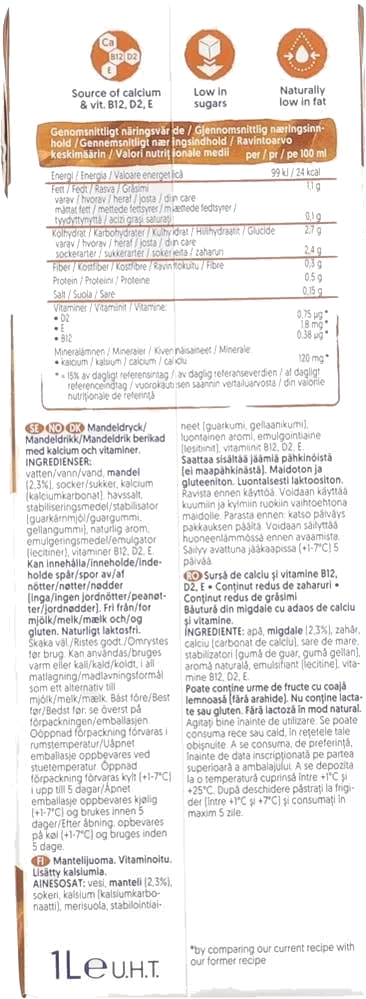 Ca
B12 D2
E
Source of calcium
& vit. B12, D2, E
Low in
sugars
Naturally
low in fat
Genomsnittligt näringsvärde / Gjennomsnittlig næringsinn-
hold / Gennemsnitligt næringsindhold / Ravintoarvo
keskimäärin / Valori nutriționale medii per / pr / pe 100 ml
Energi / Energia / Valoare energetică 99 kJ / 24 kcal
Fett / Fedt / Rasva / Grăsimi 1,1 g
varav / hvorav / heraf / josta / din care
mättat fett / mettede fettsyrer / mættede fedtsyrer /
tyydyttynyttä / acizi grași saturați 0,1 g
Kolhydrat / Karbohydrater / Kulhydrat / Hiilihydraatit / Glucide 2,7 g
varav / hvorav / heraf / josta / din care
sockerarter / sukkerarter / sokereita / zaharuri 2,4 g
Fiber / Kostfiber / Kostfibre / Ravintokuitu / Fibre 0,3 g
Protein / Proteiini / Proteine 0,5 g
Salt / Suola / Sare 0,15 g
Vitaminer / Vitamiinit / Vitamine:
• D2 0,75 µg*
• E 1,8 mg*
• B12 0,38 µg*
Mineralämnen / Mineraler / Kivennäisaineet / Minerale:
• kalcium / kalsium / calcium / calciu 120 mg*
* = 15% av dagligt referensintag / av daglig referanseverdien / af dagligt
referenceindtag / vuorokautisen saannin vertailuarvosta / din valorile
nutriționale de referință
SE NO DK Mandeldryck/
Mandeldrikk/Mandeldrik berikad
med kalcium och vitaminer.
INGREDIENSER:
vatten/vann/vand, mandel
(2,3%), socker/sukker, kalcium
(kalciumkarbonat), havssalt,
stabiliseringsmedel/stabilisator
(guarkärnmjöl/guargummi,
gellangummi), naturlig arom,
emulgeringsmedel/emulgator
(lecitiner), vitaminer B12, D2, E.
Kan innehålla/inneholde/inde-
holde spår/spor av/af
nötter/nøtter/nødder
(inga/ingen jordnötter/peanøt-
ter/jordnødder). Fri från/for
mjölk/melk/mælk och/og
gluten. Naturligt laktosfri.
Skaka väl./Ristes godt./Omrystes
før brug. Kan användas/bruges
varm eller kall/kald/koldt, i all
matlagning/madlavningsformål
som ett alternativ till
mjölk/melk/mælk. Bäst före/Best
før/Bedst før: se överst på
förpackningen/emballasjen.
Oöppnad förpackning förvaras i
rumstemperatur/Uåpnet
emballasje oppbevares ved
stuetemperatur. Öppnad
förpackning förvaras kylt (+1-7°C)
i upp till 5 dagar/Åpnet
emballasje oppbevares kjølig
(+1-7°C) og brukes innen 5
dager/Efter åbning, opbevares
på køl (+1-7°C) og bruges inden
5 dage.
FI Mantelijuoma. Vitaminoitu.
Lisätty kalsiumia.
AINESOSAT: vesi, manteli (2,3%),
sokeri, kalsium (kalsiumkarbo-
naatti), merisuola, stabilointiai-
neet (guarkumi, gellaanikumi),
luontainen aromi, emulgointiaine
(lesitiinit), vitamiinit B12, D2, E.
Saattaa sisältää jäämiä pähkinöistä
(ei maapähkinästä). Maidoton ja
gluteeniton. Luontaisesti laktoositon.
Ravista ennen käyttöä. Voidaan käyttää
kuumiin ja kylmiin ruokiin vaihtoehtona
maidolle. Parasta ennen: katso päiväys
pakkauksen päältä. Voidaan säilyttää
huoneenlämmössä ennen avaamista.
Säilyy avattuna jääkaapissa (+1-7°C) 5
päivää.
RO Sursă de calciu și vitamine B12,
D2, E • Conținut redus de zaharuri •
Conținut redus de grăsimi
Băutură din migdale cu adaos de calciu
și vitamine.
INGREDIENTE: apă, migdale (2,3%), zahăr,
calciu (carbonat de calciu), sare de mare,
stabilizatori (gumă de guar, gumă gellan),
aromă naturală, emulsifiant (lecitine), vita-
mine B12, D2, E.
Poate conține urme de fructe cu coajă
lemnoasă (fără arahide). Nu conține lacta-
te sau gluten. Fără lactoză în mod natural.
Agitați bine înainte de utilizare. Se poate
consuma rece sau cald, în rețetele tale
obișnuite. A se consuma, de preferință,
înainte de data inscripționată pe partea
superioară a ambalajului. A se depozita
la o temperatură cuprinsă între +1°C și
+25°C. După deschidere păstrați la frigi-
der (între +1°C și +7°C) și consumați în
maxim 5 zile.
1L e U.H.T.
*by comparing our current recipe with
our former recipe